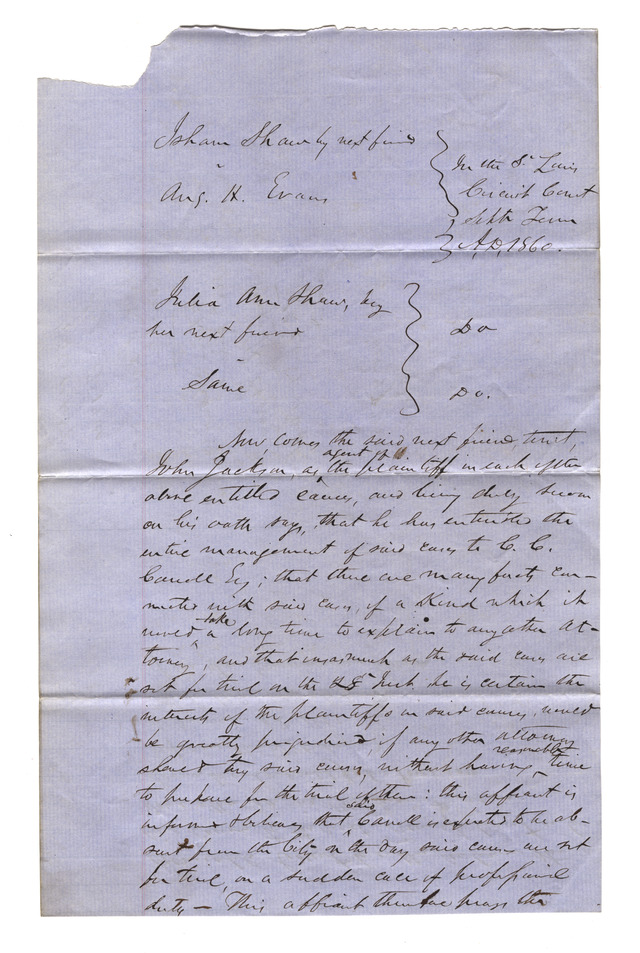 Isham Shaw by next friend
"
Aug. H. Evans
In the St Louis
Circuit Court
Septr Term
A,D, 1860.
Julia Ann Shaw, by
her next friend
"
Same
Do
Do.
Now, comes the said next friend, to wit,
John Jackson, as agent of the plaintiff in each of the
above entitled causes, and being duly sworn
on his oath says, that he has entrusted the
entire management of said cases to C. C.
Carroll Esq; that there are many facts con-
nected with said cases, of a Kind which it
would take a long time to explain to any other At-
torney, and that inasmuch as the said cases are
set for trial on the Inst. he is certain the
interests of the plaintiffs in said causes, would
be greatly prejudiced, if any other attorney
should try said causes, without having reasonable time
to prepare for the trial of them: this affiant is
informed & believes that said Carroll is expected to be ab-
sent from the City on the day said causes are set
for trial, on a sudden call of professional
duty — This affiant therefore prays the